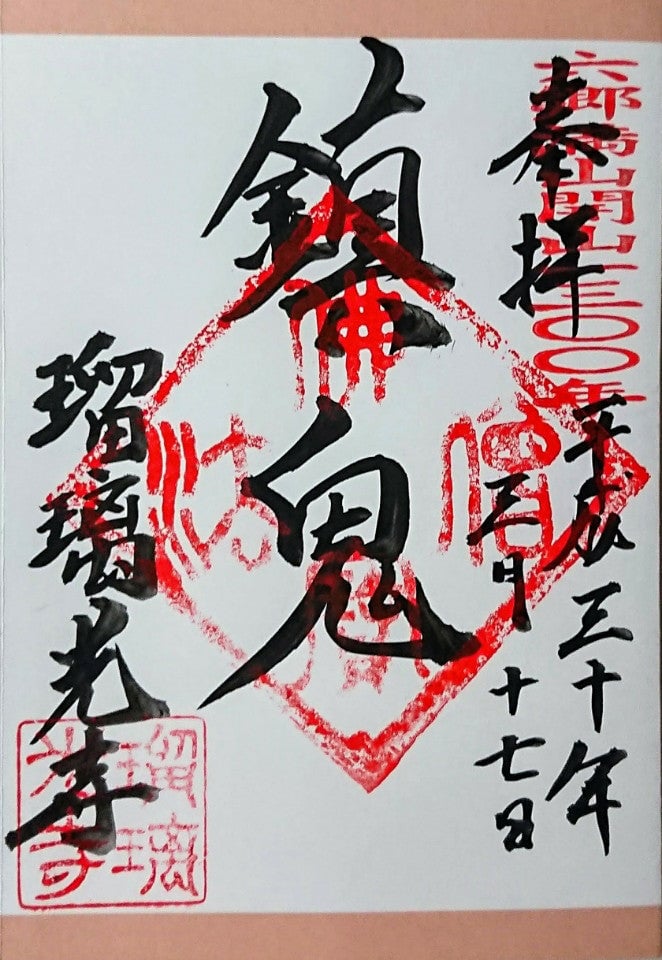 六郷満山開山一三〇〇年
奉拝
平成三十年
三月十七日
鎮鬼
佛
法
僧
寳
瑠璃光寺
瑠璃
光寺